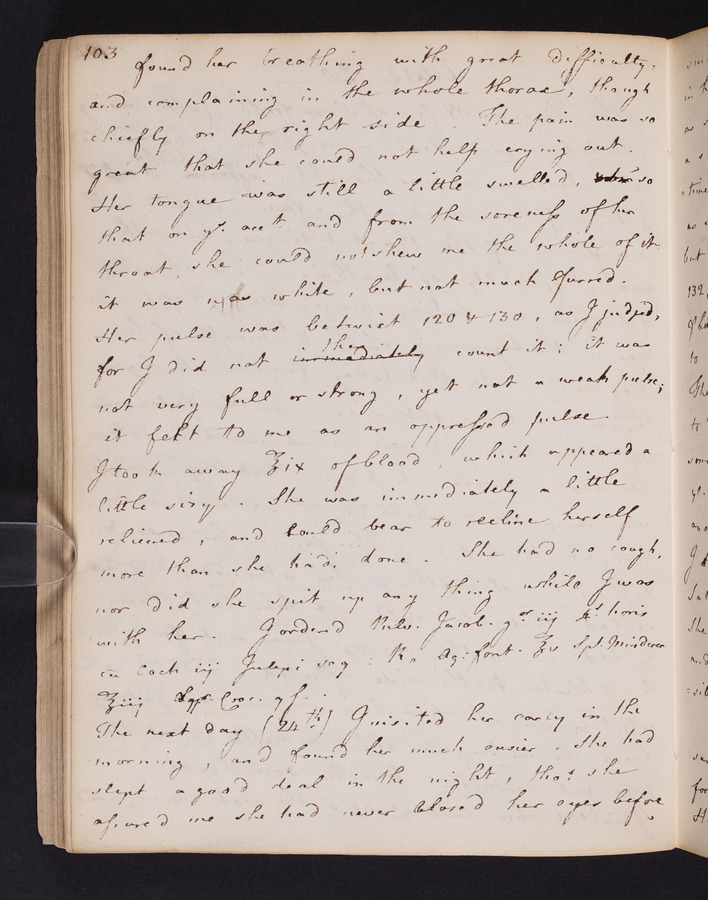 103
found her breathing with great difficulty,
and complaining in the whole thorax, though
chiefly on the right side. The pain was so
great that she could not help crying out.
Her tongue was still a little swelled, so
that on yt. acct and from the soreness of her
throat, she could not shew me the whole of it.
it was white, but not much furred.
Her pulse was betwixt 120 & 130, as I judged,
for I did not immediately then count it; it was
not very full or strong, yet not a weak pulse;
it felt to me as an oppressed pulse.
I took away ℥ix of blood, which appeared a
little sizy. She was immediately a little
relieved, and could bear to recline herself
more than she had done. She had no cough,
nor did she spit up any thing while I was
with her. I orderd Pulv. Jacob. gr iij 4s horis
cū Coch iij Julepi seq: Rx Aq: font. ℥v Spt. Minderer
℥iij Syr. Croc. q s.
The next day (24th) I visited her early in the
morning, and found her much easier. She had
slept a good deal in the night, tho' she
assured me she had never closed her eyes before